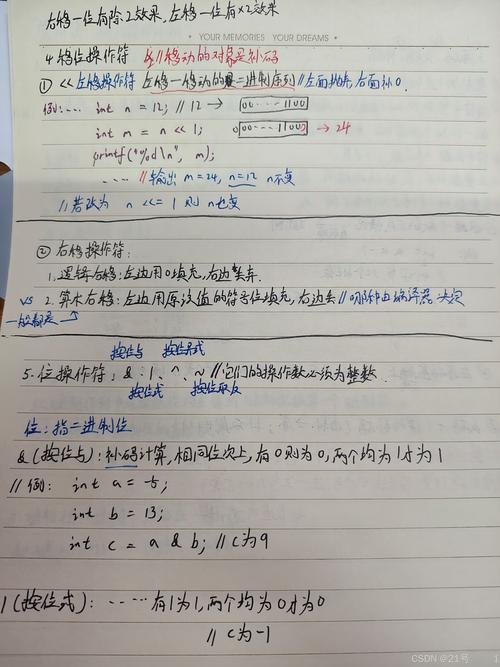 右移一位有除2效果,左移一位有×2效果
YOUR MEMORIES YOUR DREAMS
4.移位操作符 &//移动的对象是补码
① << 左移操作符 左移一移动的是二进制序列 //左面抛弃,右面补0.
例:… int n = 12; // 12 → 00……1100
int m = n << 1; 0 00……1100 → 24
printf("%d\n", m);
…… //输出 m=24, n=12 n不变
//若改为 n <<= 1 则 n也变
② 右移操作符:
1.逻辑右移:左边用0填充,右边丢弃.
VS 2.算术右移:左边用原该值的符号位填充,右边丢 //哪种由编译器决定
一般都是 ↑
按位与 按位异或
5.位操作符: & | ^ ~ //它们的操作数必须为整数.
按位或 按位取反
位:指二进制位
&(按位与):补码计算,相同位次上,有0则为0,两个均为1才为1
//例: int a = -5;
int b = 13;
int c = a & b; // c为9
|(按位或): …… 有1为1,两个均为0才为0
// c为-1
CSDN @21号
1